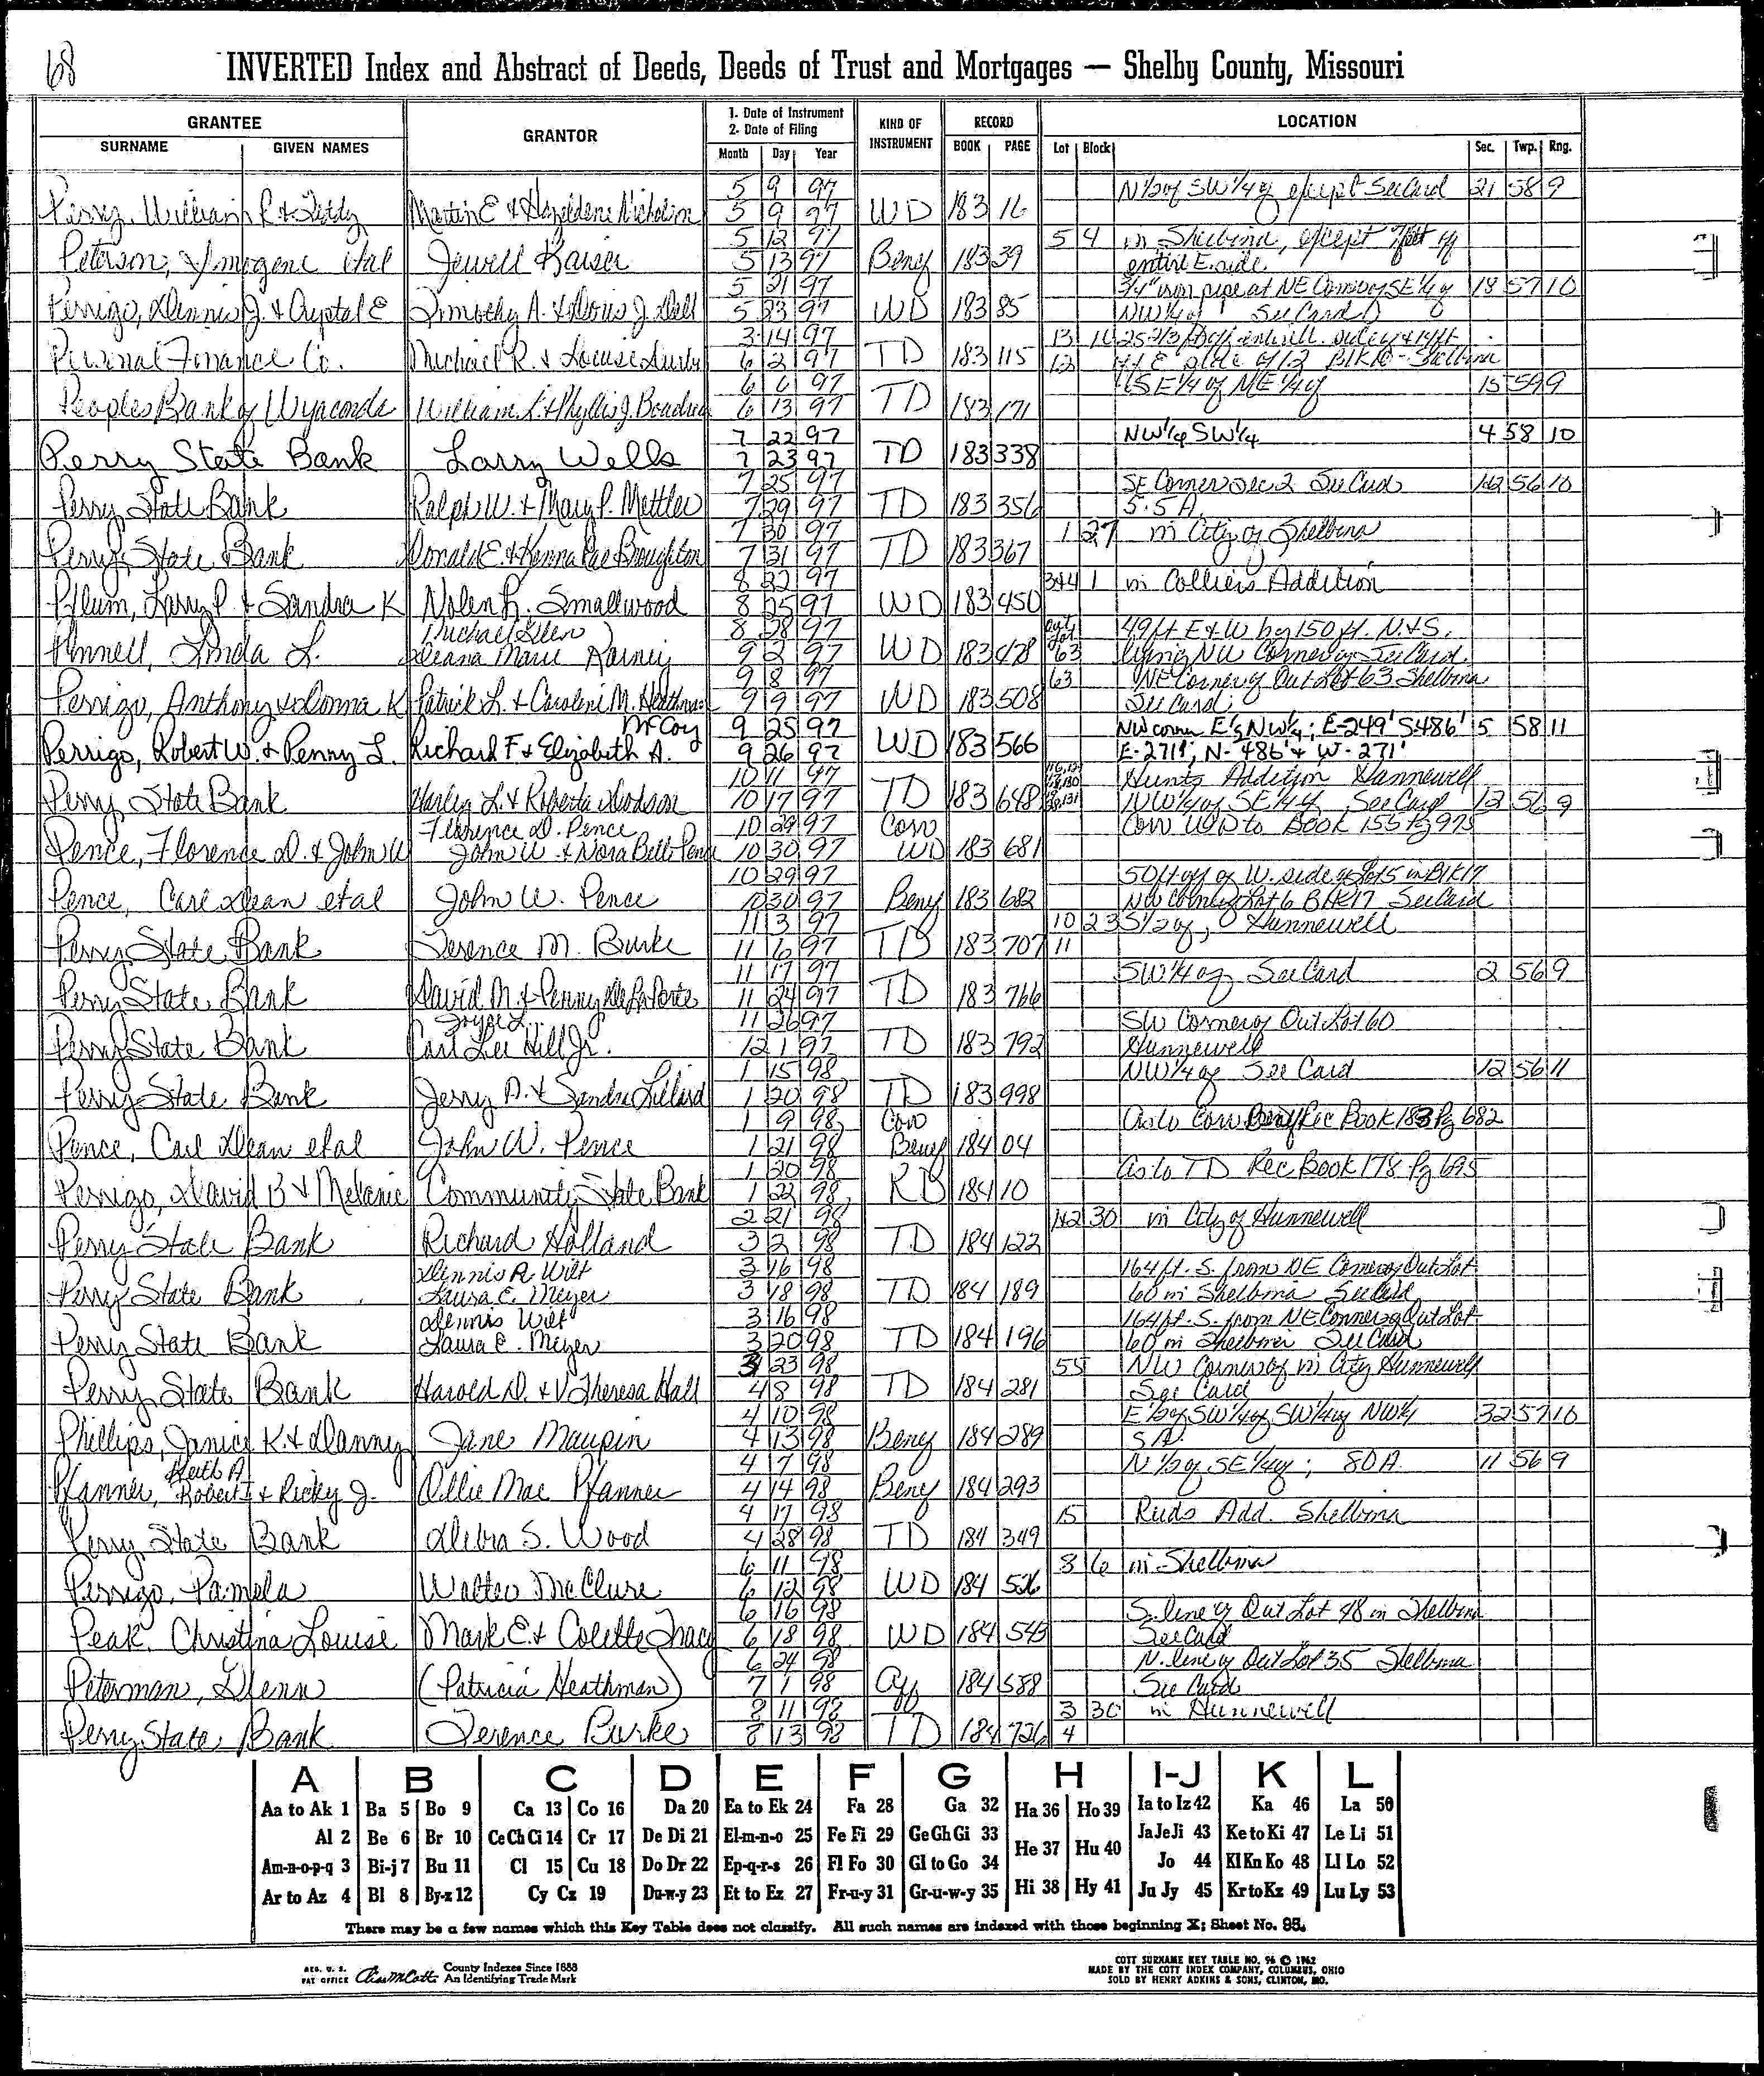 68
INVERTED Index and Abstract of Deeds, Deeds of Trust and Mortgages — Shelby County, Missouri
GRANTEE
SURNAME GIVEN NAMES
GRANTOR
1. Date of Instrument
2. Date of Filing
Month Day Year
KIND OF INSTRUMENT
RECORD
BOOK PAGE
LOCATION
Lot Block Sec. Twp. Rng.
5 9 97 N½ of SW¼ of except See Card 21 58 9
Perry, William R & Martin E & Nicholson 5 9 97 WD 183 16
5 12 97 5 4 in Shelbina, except
Peterson, Imogene etal Jewell Kaiser 5 13 97 Beny 183 39 entire E. side
5 21 97 3/4" iron pipe at NE Corner of SE¼ of 18 57 10
Perrigo, Dennis J. & Crystal E Timothy A. & Doris J. Dell 5 23 97 WD 183 85 NW¼ of See Card
3 14 97 13
Personal Finance Co. Michael R. & Louise 6 2 97 TD 183 115 12 Shelbina
6 6 97 SE¼ of NE¼ of 15 59 9
Peoples Bank of Wyaconda William L. & Phyllis J. 6 13 97 TD 183 171
7 22 97 NW¼ SW¼ 4 58 10
Perry State Bank Larry Wells 7 23 97 TD 183 338
7 25 97 SE Corner Sec 2 See Card 56 10
Perry State Bank Ralph W. & Mary P. Mettler 7 29 97 TD 183 356 5.5 A
7 30 97 1 27 in City of Shelbina
Perry State Bank Donald E. & Kenna Rae Broughton 7 31 97 TD 183 367
8 22 97 3&4 1 in Colliers Addition
Pflum, Larry P. & Sandra K Nolen R. Smallwood 8 25 97 WD 183 450
Michael Glen 8 28 97 Out Lot 49 ft E & W by 150 ft. N. & S.
Pinnell, Linda L. Deana Marie Rainey 9 2 97 WD 183 478 63 lying NW Corner of See Card
9 8 97 63 NE Corner of Out Lot 63 Shelbina
Perrigo, Anthony & Donna K Patrick L. & Caroline M. 9 9 97 WD 183 508 See Card
McCoy 9 25 97 NW corn E½ NW¼; E-249' S-486' 5 58 11
Perrigo, Robert W. & Penny L. Richard F & Elizabeth A. 9 26 97 WD 183 566 E-271'; N-486' & W-271'
10 11 97 Hunts Addition Hunnewell
Perry State Bank Harley L. & Roberta Dodson 10 17 97 TD 183 648 NW¼ of SE¼ of See Card 12 56 9
Florence D. Pence 10 29 97 Corr Corr WD to Book 155 Pg 975
Pence, Florence D. & John W John W. & Nora Belle Pence 10 30 97 WD 183 681
10 29 97 50 ft off of W. side of Lot 5 in Blk 17
Pence, Carl Dean etal John W. Pence 10 30 97 Beny 183 682 NW Corner Lot 6 Blk 17 See Card
11 3 97 10 23 S½ of, Hunnewell
Perry State Bank Terence M. Burke 11 6 97 TD 183 707 11
11 17 97 SW¼ of See Card 2 56 9
Perry State Bank David M. & Penny De La Porte 11 24 97 TD 183 766
Joyce L. 11 26 97 SW Corner of Out Lot 60
Perry State Bank Carl Lee Hill Jr. 12 1 97 TD 183 792 Hunnewell
1 15 98 NW¼ of See Card 12 56 11
Perry State Bank Jerry D. & Sandra Lillard 1 20 98 TD 183 998
1 9 98 Corr As to Corr Beny Rec Book 183 Pg 682
Pence, Carl Dean etal John W. Pence 1 21 98 Beny 184 04
1 20 98 as to TD Rec Book 178 Pg 695
Perrigo, David B & Melanie Community State Bank 1 22 98 RD 184 10
2 21 98 1&2 30 in City of Hunnewell
Perry State Bank Richard Holland 3 2 98 TD 184 122
Dennis R. Wilt 3 16 98 164 ft. S. from NE Corner of Out Lot
Perry State Bank Laura E. Meyer 3 18 98 TD 184 189 60 in Shelbina See Card
Dennis Wilt 3 16 98 164 ft. S. from NE Corner of Out Lot
Perry State Bank Laura E. Meyer 3 20 98 TD 184 196 60 in Shelbina See Card
3 23 98 55 NW Corner of in City Hunnewell
Perry State Bank Harold D. & V. Theresa Hall 4 8 98 TD 184 281 See Card
4 10 98 E½ of SW¼ of SW¼ of NW¼ 32 57 10
Phillips, Janice K. & Danny Jane Maupin 4 13 98 Beny 184 289 5 A
Keith A 4 7 98 N½ of SE¼ of; 80 A. 11 56 9
Pfanner, Robert I & Ricky J. Ollie Mae Pfanner 4 14 98 Beny 184 293
4 17 98 15 Reids Add. Shelbina
Perry State Bank Debra S. Wood 4 28 98 TD 184 349
6 11 98 8 6 in Shelbina
Perrigo, Pamela Walter McClure 6 12 98 WD 184 526
6 16 98 S. line of Out Lot 48 in Shelbina
Peak, Christina Louise Mark E. & Colette Tracy 6 18 98 WD 184 543 See Card
6 24 98 N. line of Out Lot 35 Shelbina
Peterman, Glenn (Patricia Heathman) 7 1 98 Aff 184 588 See Card
8 11 98 3 30 in Hunnewell
Perry State Bank Terence Burke 8 13 98 TD 184 726 4
A B C D E F G H I-J K L
Aa to Ak 1 Ba 5 Bo 9 Ca 13 Co 16 Da 20 Ea to Ek 24 Fa 28 Ga 32 Ha 36 Ho 39 Ia to Iz 42 Ka 46 La 50
Al 2 Be 6 Br 10 Ce Ch Ci 14 Cr 17 De Di 21 El-m-n-o 25 Fe Fi 29 Ge Gh Gi 33 He 37 Hu 40 Ja Je Ji 43 Ke to Ki 47 Le Li 51
Am-n-o-p-q 3 Bi-j 7 Bu 11 Cl 15 Cu 18 Do Dr 22 Ep-q-r-s 26 Fl Fo 30 Gl to Go 34 Jo 44 Kl Kn Ko 48 Ll Lo 52
Ar to Az 4 Bl 8 By-z 12 Cy Cz 19 Du-w-y 23 Et to Ez 27 Fr-u-y 31 Gr-u-w-y 35 Hi 38 Hy 41 Ju Jy 45 Kr to Kz 49 Lu Ly 53
There may be a few names which this Key Table does not classify. All such names are indexed with those beginning X; Sheet No. 95.
REG. U. S. PAT OFFICE County Indexes Since 1888 An Identifying Trade Mark
COTT SURNAME KEY TABLE NO. 96 © 1962
MADE BY THE COTT INDEX COMPANY, COLUMBUS, OHIO
SOLD BY HENRY ADKINS & SONS, CLINTON, MO.